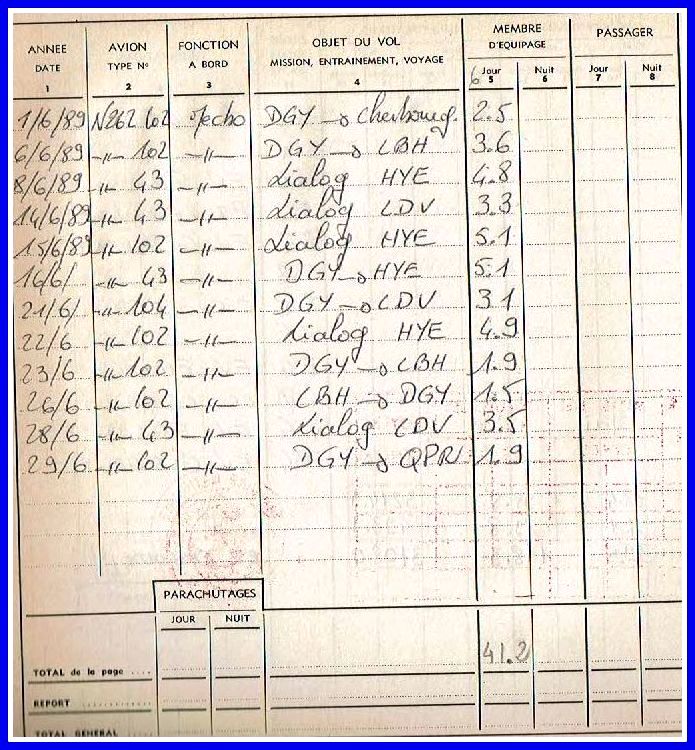 ANNEE DATE AVION TYPE N° FONCTION A BORD OBJET DU VOL MISSION, ENTRAINEMENT, VOYAGE MEMBRE D'EQUIPAGE PASSAGER
6 Jour Nuit Jour Nuit
1 2 3 4 5 6 7 8
1/6/89 N262 102 Mecbo DGY → Cherbourg. 2.5
6/6/89 -"- 102 -"- DGY → LBH 3.6
8/6/89 -"- 43 -"- Lialog HYE 4.8
14/6/89 -"- 43 -"- Lialog LDV 3.3
15/6/89 -"- 102 -"- Lialog HYE 5.1
16/6/ -"- 43 -"- DGY → HYE 5.1
21/6/ -"- 104 -"- DGY → LDV 3.1
22/6 -"- 102 -"- Lialog HYE 4.9
23/6 -"- 102 -"- DGY → LBH 1.9
26/6 -"- 102 -"- LBH → DGY 1.5
28/6 -"- 43 -"- Lialog LDV 3.5
29/6 -"- 102 -"- DGY → QPR 1.9
PARACHUTAGES
JOUR NUIT
TOTAL de la page .... 41.2
REPORT ............
TOTAL GENERAL